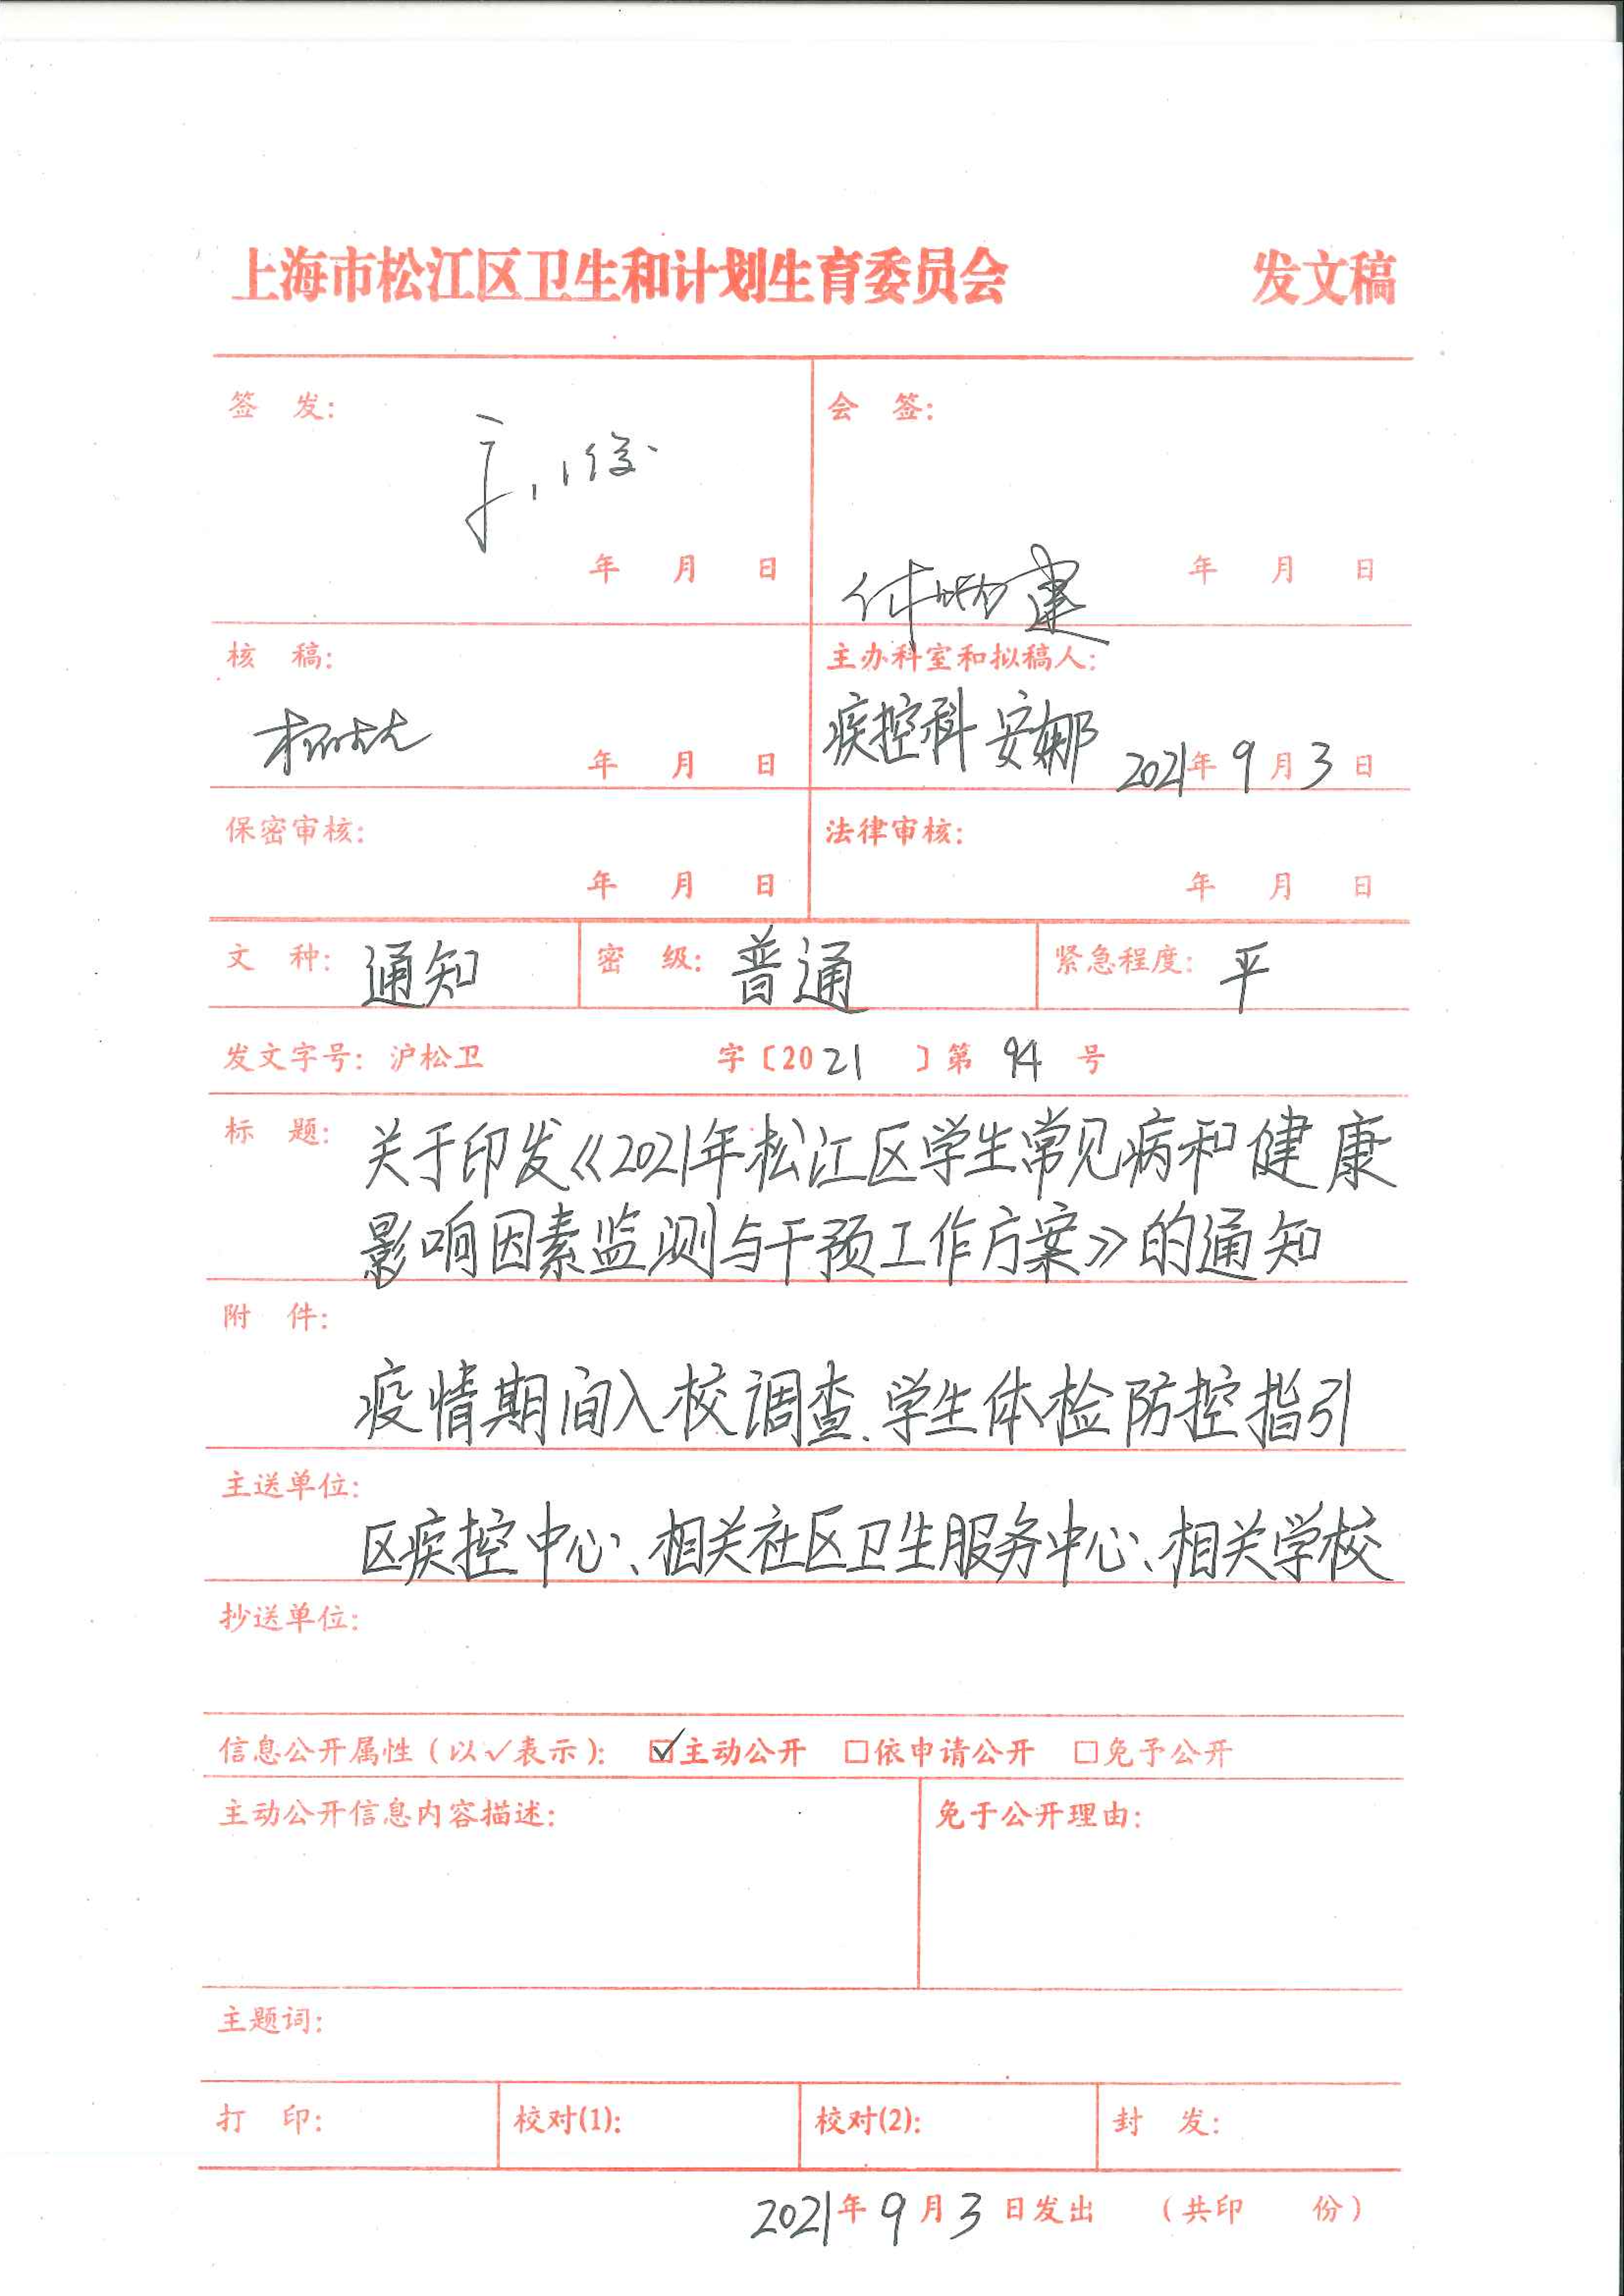 上海市松江区卫生和计划生育委员会 发文稿
签 发: 会 签:
年 月 日 年 月 日
核 稿: 主办科室和拟稿人:
疾控科 安娜
年 月 日 2021年9月3日
保密审核: 法律审核:
年 月 日 年 月 日
文 种: 通知 密 级: 普通 紧急程度: 平
发文字号: 沪松卫 字〔2021〕第 94 号
标 题: 关于印发《2021年松江区学生常见病和健康
影响因素监测与干预工作方案》的通知
附 件:
疫情期间入校调查、学生体检防控指引
主送单位:
区疾控中心、相关社区卫生服务中心、相关学校
抄送单位:
信息公开属性（以√表示）: ☑主动公开 □依申请公开 □免予公开
主动公开信息内容描述: 免于公开理由:
主题词:
打 印: 校对(1): 校对(2): 封 发:
2021年9月3日发出 （共印 份）